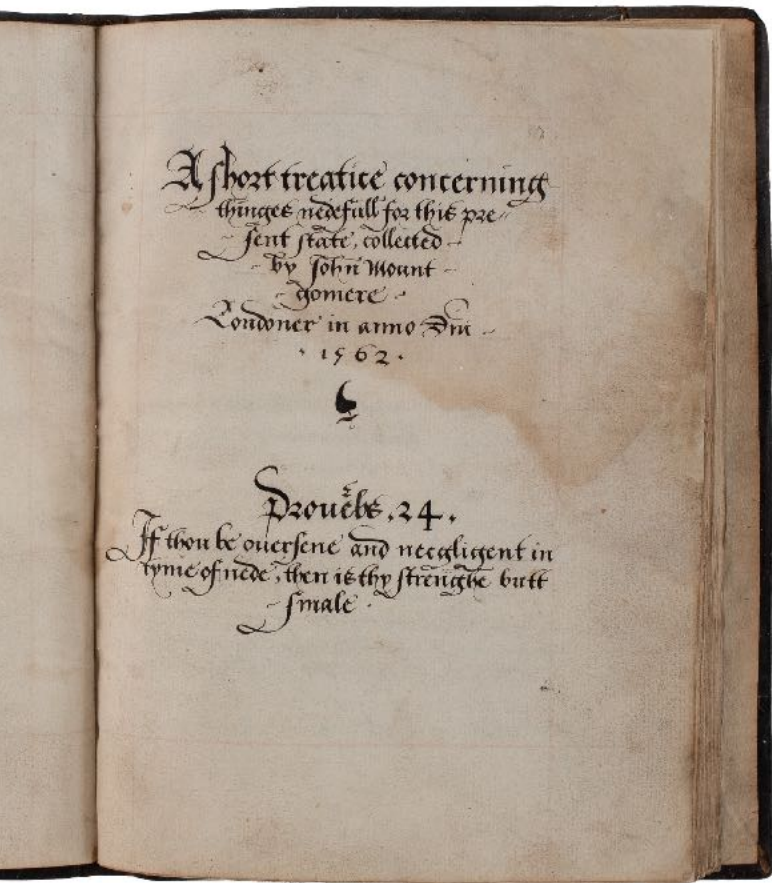 A short treatice concerning
thinges nedefull for this pre-
sent state, collected
by John Mount
gomere
Londoner in anno Dni
1562.
Prouĕbs.24.
If thou be ouersene and neegligent in
tyme of nede, then is thy strengthe butt
smale.